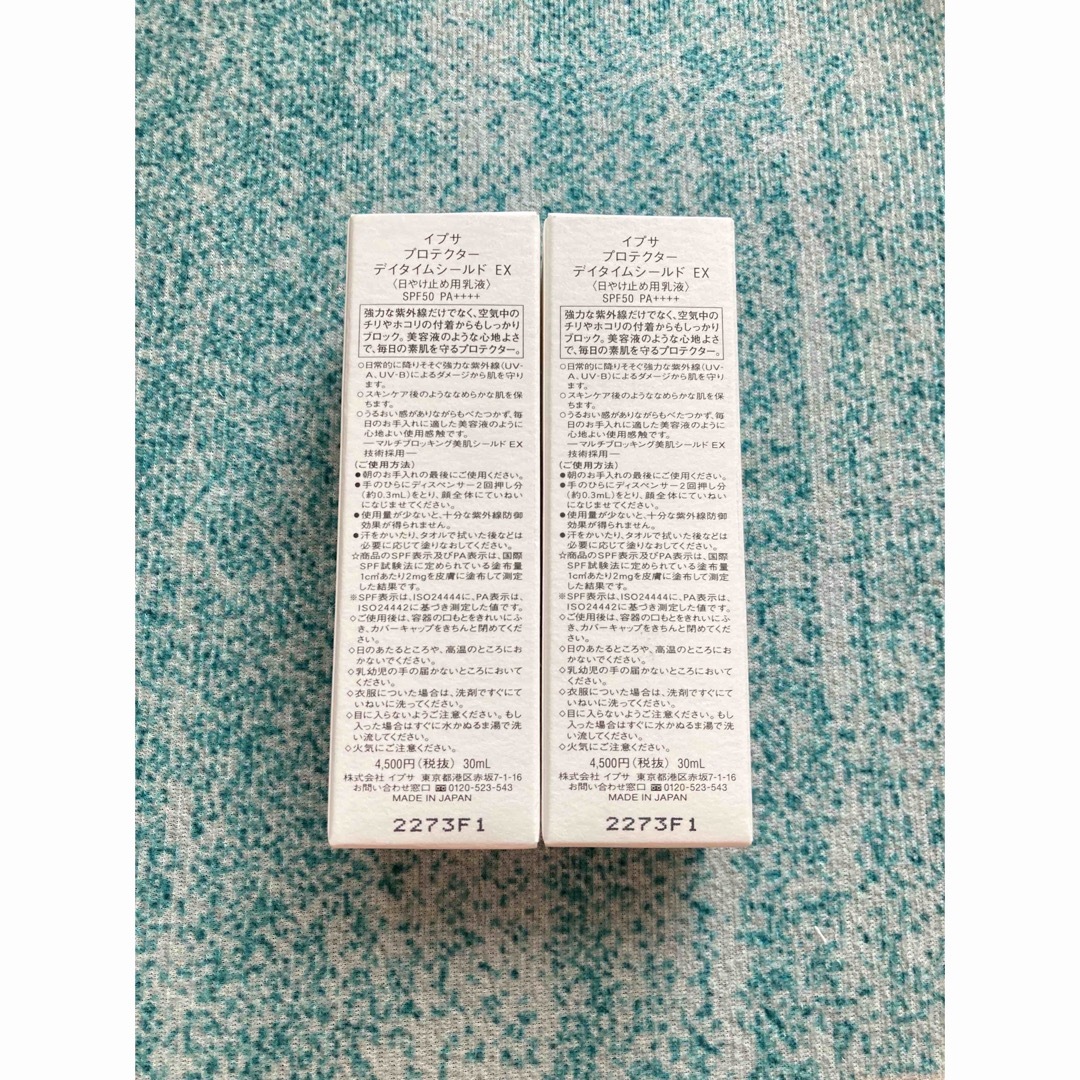 イプサ
プロテクター
デイタイムシールド EX
〈日やけ止め用乳液〉
SPF50 PA++++
強力な紫外線だけでなく、空気中の
チリやホコリの付着からもしっかり
ブロック。美容液のような心地よさ
で、毎日の素肌を守るプロテクター。
○日常的に降りそそぐ強力な紫外線(UV-
A、UV-B)によるダメージから肌を守り
ます。
○スキンケア後のようななめらかな肌を保
ちます。
○うるおい感がありながらもべたつかず、毎
日のお手入れに適した美容液のように
心地よい使用感触です。
―マルチブロッキング美肌シールド EX
技術採用―
〈ご使用方法〉
●朝のお手入れの最後にご使用ください。
●手のひらにディスペンサー2回押し分
(約0.3mL)をとり、顔全体にていねい
になじませてください。
●使用量が少ないと、十分な紫外線防御
効果が得られません。
●汗をかいたり、タオルで拭いた後などは
必要に応じて塗りなおしてください。
☆商品のSPF表示及びPA表示は、国際
SPF試験法に定められている塗布量
1c㎡あたり2mgを皮膚に塗布して測定
した結果です。
※SPF表示は、ISO24444に、PA表示は、
ISO24442に基づき測定した値です。
◇ご使用後は、容器の口もとをきれいにふ
き、カバーキャップをきちんと閉めてくだ
さい。
◇日のあたるところや、高温のところにお
かないでください。
◇乳幼児の手の届かないところにおいて
ください。
◇衣服についた場合は、洗剤ですぐにて
いねいに洗ってください。
◇目に入らないようご注意ください。もし
入った場合はすぐに水かぬるま湯で洗
い流してください。
◇火気にご注意ください。
4,500円(税抜) 30mL
株式会社 イプサ 東京都港区赤坂7-1-16
お問い合わせ窓口 0120-523-543
MADE IN JAPAN
2273F1
イプサ
プロテクター
デイタイムシールド EX
〈日やけ止め用乳液〉
SPF50 PA++++
強力な紫外線だけでなく、空気中の
チリやホコリの付着からもしっかり
ブロック。美容液のような心地よさ
で、毎日の素肌を守るプロテクター。
○日常的に降りそそぐ強力な紫外線(UV-
A、UV-B)によるダメージから肌を守り
ます。
○スキンケア後のようななめらかな肌を保
ちます。
○うるおい感がありながらもべたつかず、毎
日のお手入れに適した美容液のように
心地よい使用感触です。
―マルチブロッキング美肌シールド EX
技術採用―
〈ご使用方法〉
●朝のお手入れの最後にご使用ください。
●手のひらにディスペンサー2回押し分
(約0.3mL)をとり、顔全体にていねい
になじませてください。
●使用量が少ないと、十分な紫外線防御
効果が得られません。
●汗をかいたり、タオルで拭いた後などは
必要に応じて塗りなおしてください。
☆商品のSPF表示及びPA表示は、国際
SPF試験法に定められている塗布量
1c㎡あたり2mgを皮膚に塗布して測定
した結果です。
※SPF表示は、ISO24444に、PA表示は、
ISO24442に基づき測定した値です。
◇ご使用後は、容器の口もとをきれいにふ
き、カバーキャップをきちんと閉めてくだ
さい。
◇日のあたるところや、高温のところにお
かないでください。
◇乳幼児の手の届かないところにおいて
ください。
◇衣服についた場合は、洗剤ですぐにて
いねいに洗ってください。
◇目に入らないようご注意ください。もし
入った場合はすぐに水かぬるま湯で洗
い流してください。
◇火気にご注意ください。
4,500円(税抜) 30mL
株式会社 イプサ 東京都港区赤坂7-1-16
お問い合わせ窓口 0120-523-543
MADE IN JAPAN
2273F1